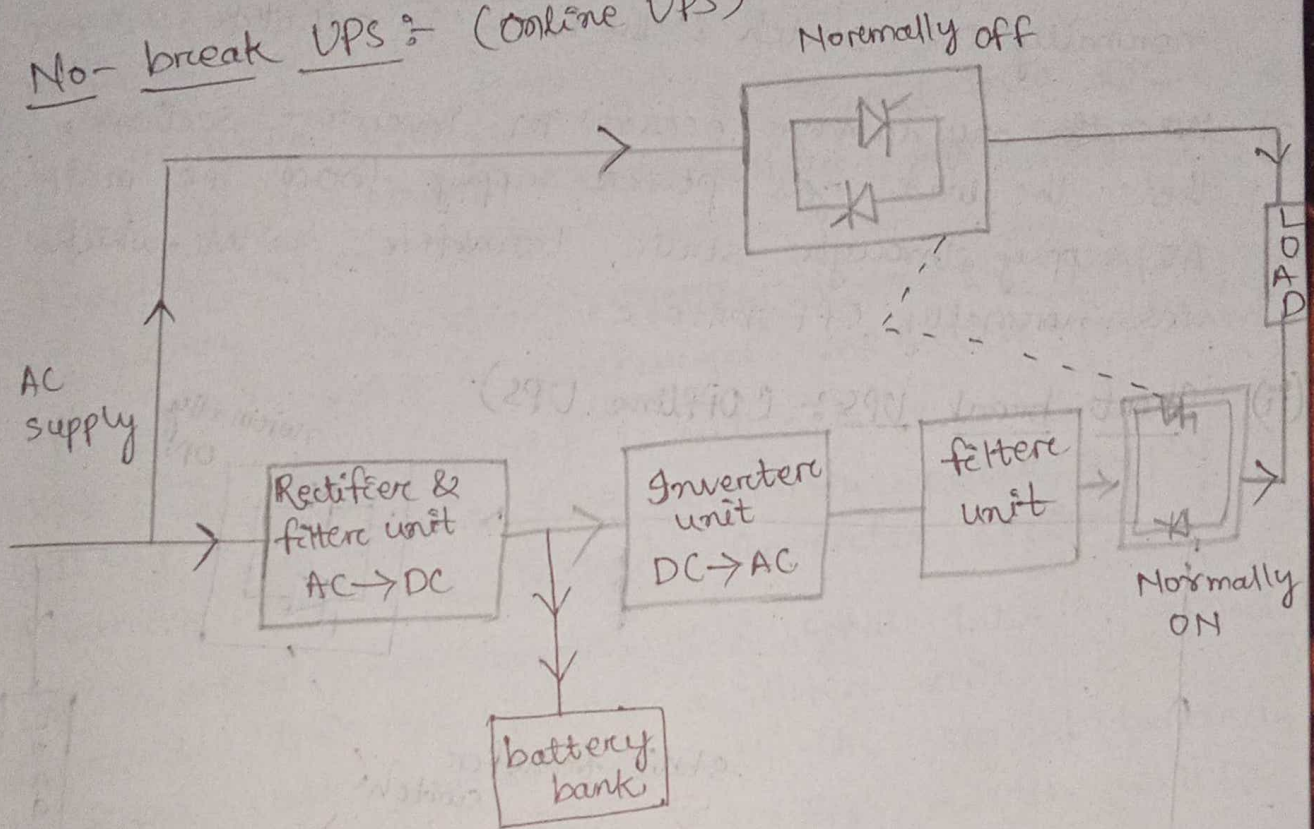 No- break UPS :- (Online UPS)
Normally off
LOAD
AC
supply
Rectifier &
filter unit
AC→DC
Inverter
unit
DC→AC
filter
unit
Normally
ON
battery
bank